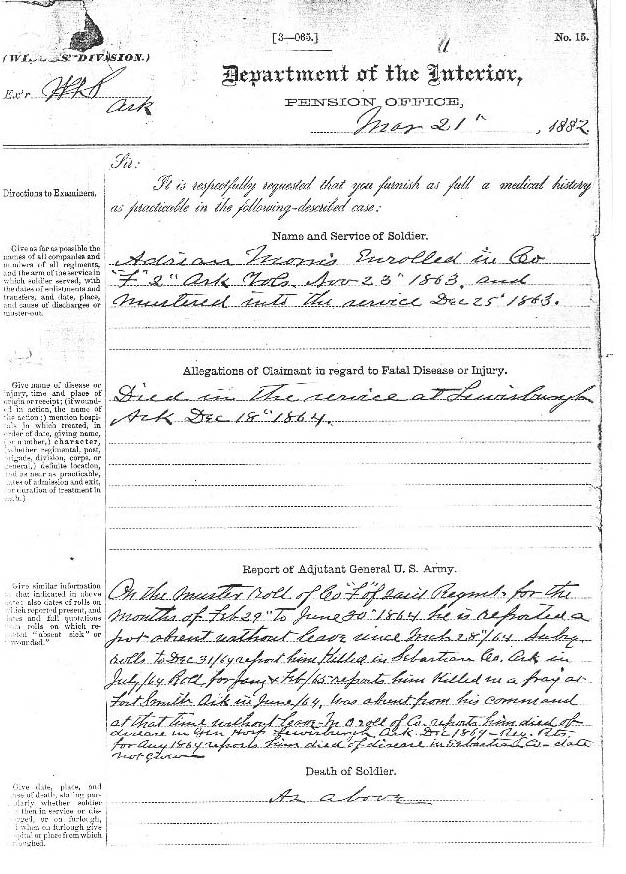 [3—065.]
No. 15.
DIVISION.)
Ex'r
Ark
Department of the Interior,
PENSION OFFICE,
Mar 21" , 1882
Sir:
It is respectfully requested that you furnish as full a medical history
as practicable in the following-described case:
Directions to Examiners.
Name and Service of Soldier.
Give as far as possible the
names of all companies and
numbers of all regiments,
and the arm of the service in
which soldier served, with
the dates of enlistments and
transfers, and date, place,
and cause of discharges or
muster-out.
Adrian Morris Enrolled in Co
"F" 2" Ark Vols. Nov 23" 1863, and
mustered into the service Dec 25" 1863.
Allegations of Claimant in regard to Fatal Disease or Injury.
Give name of disease or
injury, time and place of
origin or receipt; (if wound-
ed in action, the name of
the action;) mention hospi-
als in which treated, in
order of date, giving name,
(or number,) character,
(whether regimental, post,
brigade, division, corps, or
general,) definite location,
and as near as practicable,
dates of admission and exit,
or duration of treatment in
each.)
Died in the service at Lewisburgh
Ark Dec 18" 1864.
Report of Adjutant General U. S. Army.
Give similar information
that indicated in above
also dates of rolls on
which reported present, and
dates and full quotations
rolls on which re-
"absent sick" or
wounded."
On the muster roll of Co "F" of said Regmt. for the
months of Feb 29" to June 30" 1864 he is reported a
absent without leave since Mch 28"/64 Subq
rolls to Dec 31/64 report him Killed in Sebastian Co. Ark in
July/64 Roll for Jany & Feb/65 reports him Killed in a fray at
Fort Smith Ark in June/64, was absent from his command
at that time without leave. M O roll of Co. reports him died of
disease in Gen Hosp Lewisburgh Ark. Dec 1864 - Reg. Rts.
for Aug 1864 reports him died of disease in Sebastian Co. date
not given
Death of Soldier.
Give date, place, and
use of death, stating par-
ularly whether soldier
then in service or dis-
rged, or on furlough,
when on furlough give
spital or place from which
loughed.
As above